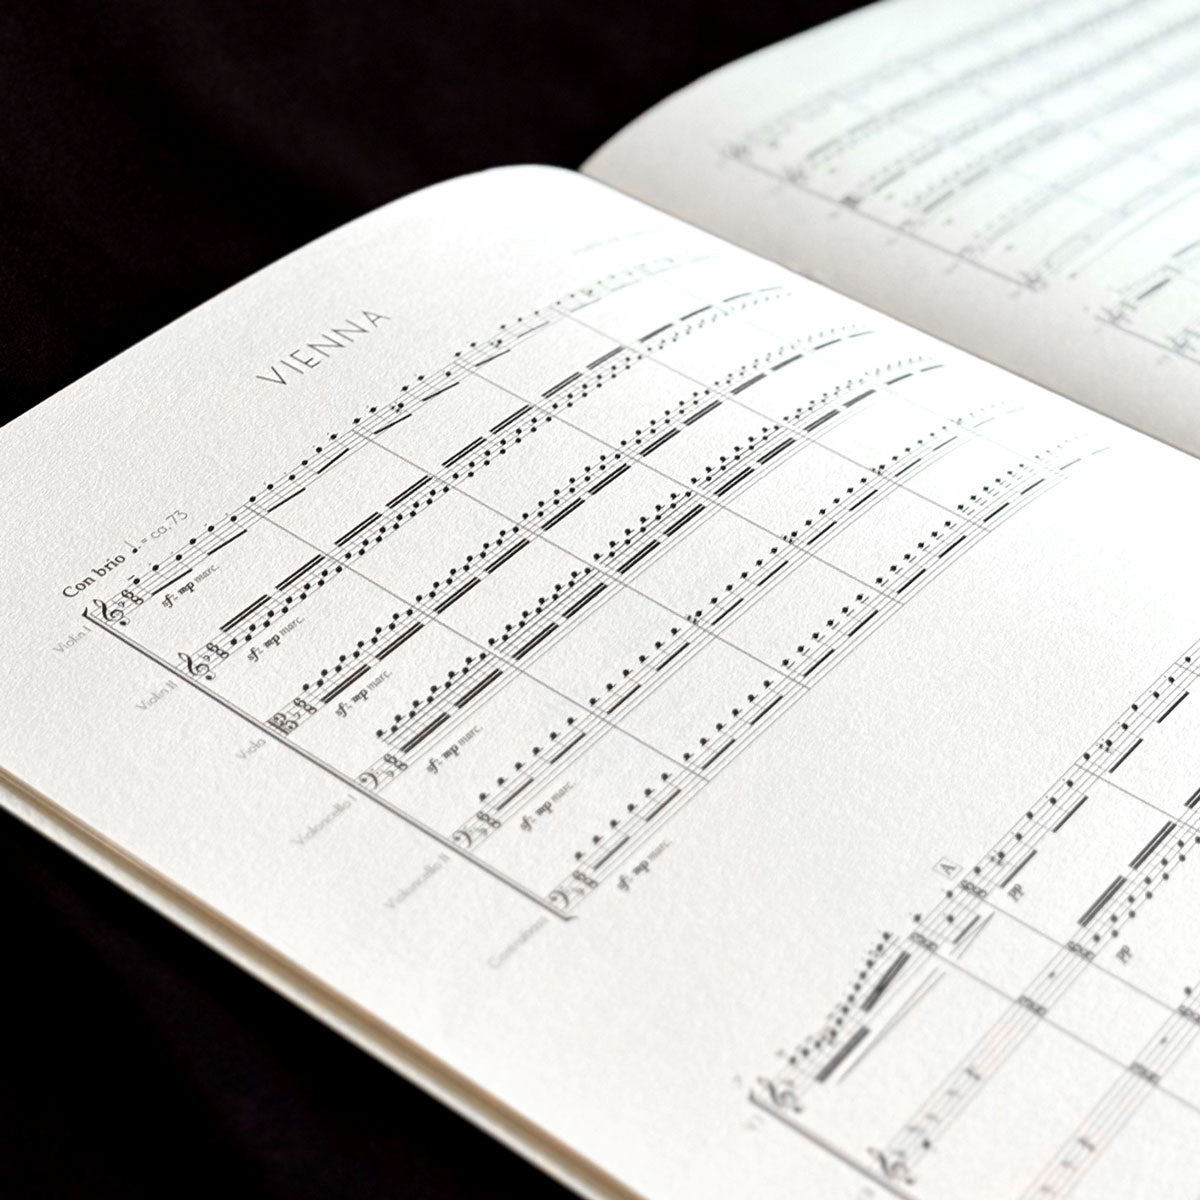 VIENNA
Con brio ♩. = ca. 73
Violin I
sf: mp marc.
Violin II
sf: mp marc.
Viola
sf: mp marc.
Violoncello I
sf: mp marc.
Violoncello II
sf: mp marc.
Contrabass
sf: mp marc.
A
pp
pp